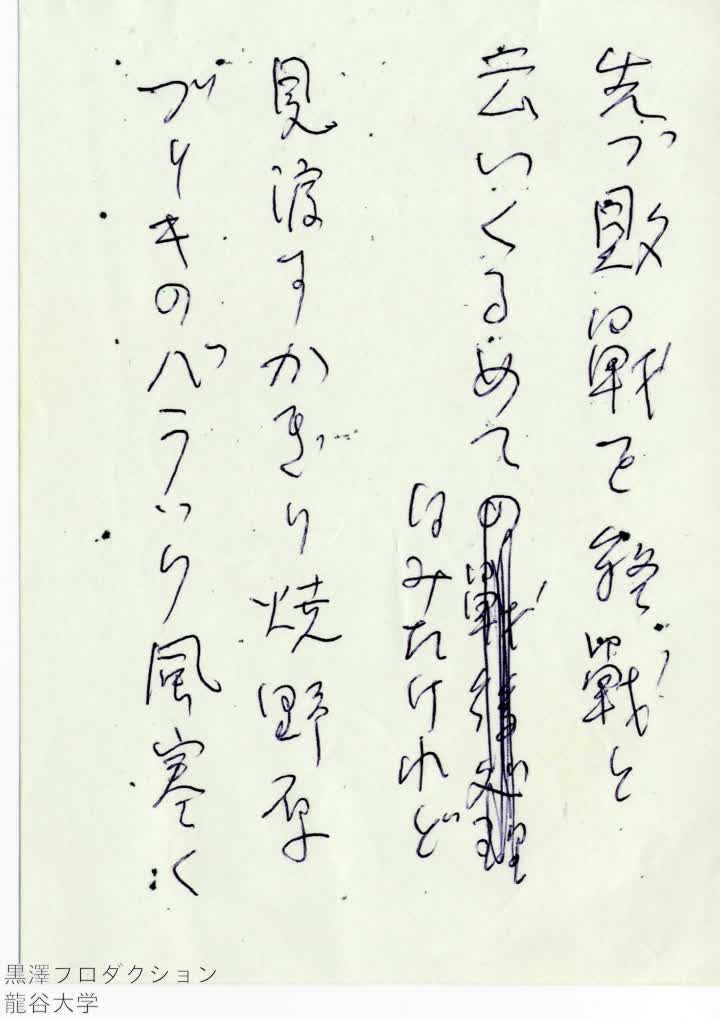 先づ敗戰を終戰と
云いくるめての戰後処理
はみたけれど
見渡すかぎり焼野原
ブリキのバラック風寒く
黒澤プロダクション
龍谷大学